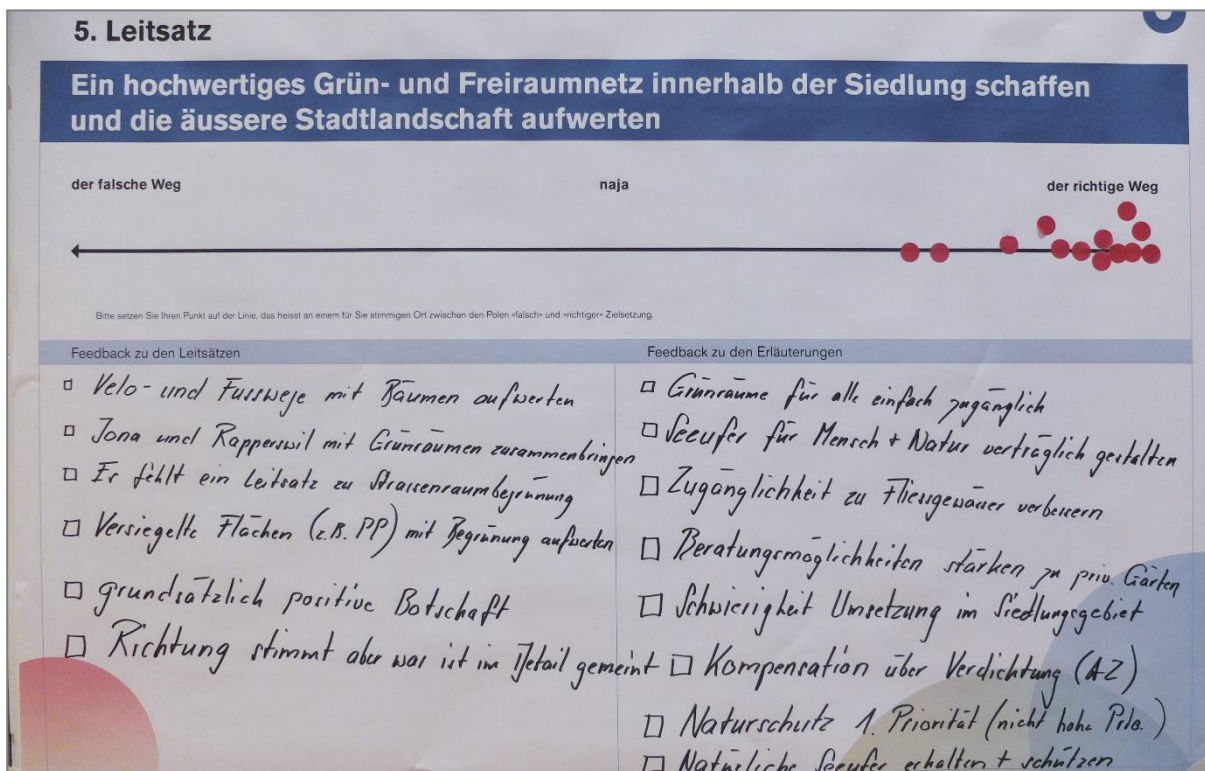 5. Leitsatz
Ein hochwertiges Grün- und Freiraumnetz innerhalb der Siedlung schaffen
und die äussere Stadtlandschaft aufwerten
der falsche Weg
naja
der richtige Weg
Bitte setzen Sie Ihren Punkt auf der Linie, das heisst an einem für Sie stimmigen Ort zwischen den Polen «falsch» und «richtiger» Zielsetzung.
Feedback zu den Leitsätzen
Velo- und Fusswege mit Bäumen aufwerten
Jona und Rapperswil mit Grünräumen zusammenbringen
Es fehlt ein Leitsatz zu Strassenraumbegrünung
Versiegelte Flächen (z.B. PP) mit Begrünung aufwerten
grundsätzlich positive Botschaft
Richtung stimmt aber was ist im Detail gemeint
Feedback zu den Erläuterungen
Grünräume für alle einfach zugänglich
Seeufer für Mensch + Natur verträglich gestalten
Zugänglichkeit zu Fliessgewässer verbessern
Beratungsmöglichkeiten stärken zu priv. Gärten
Schwierigkeit Umsetzung im Siedlungsgebiet
Kompensation über Verdichtung (AZ)
Naturschutz 1. Priorität (nicht hohe Prio.)
Natürliche Seeufer erhalten + schützen